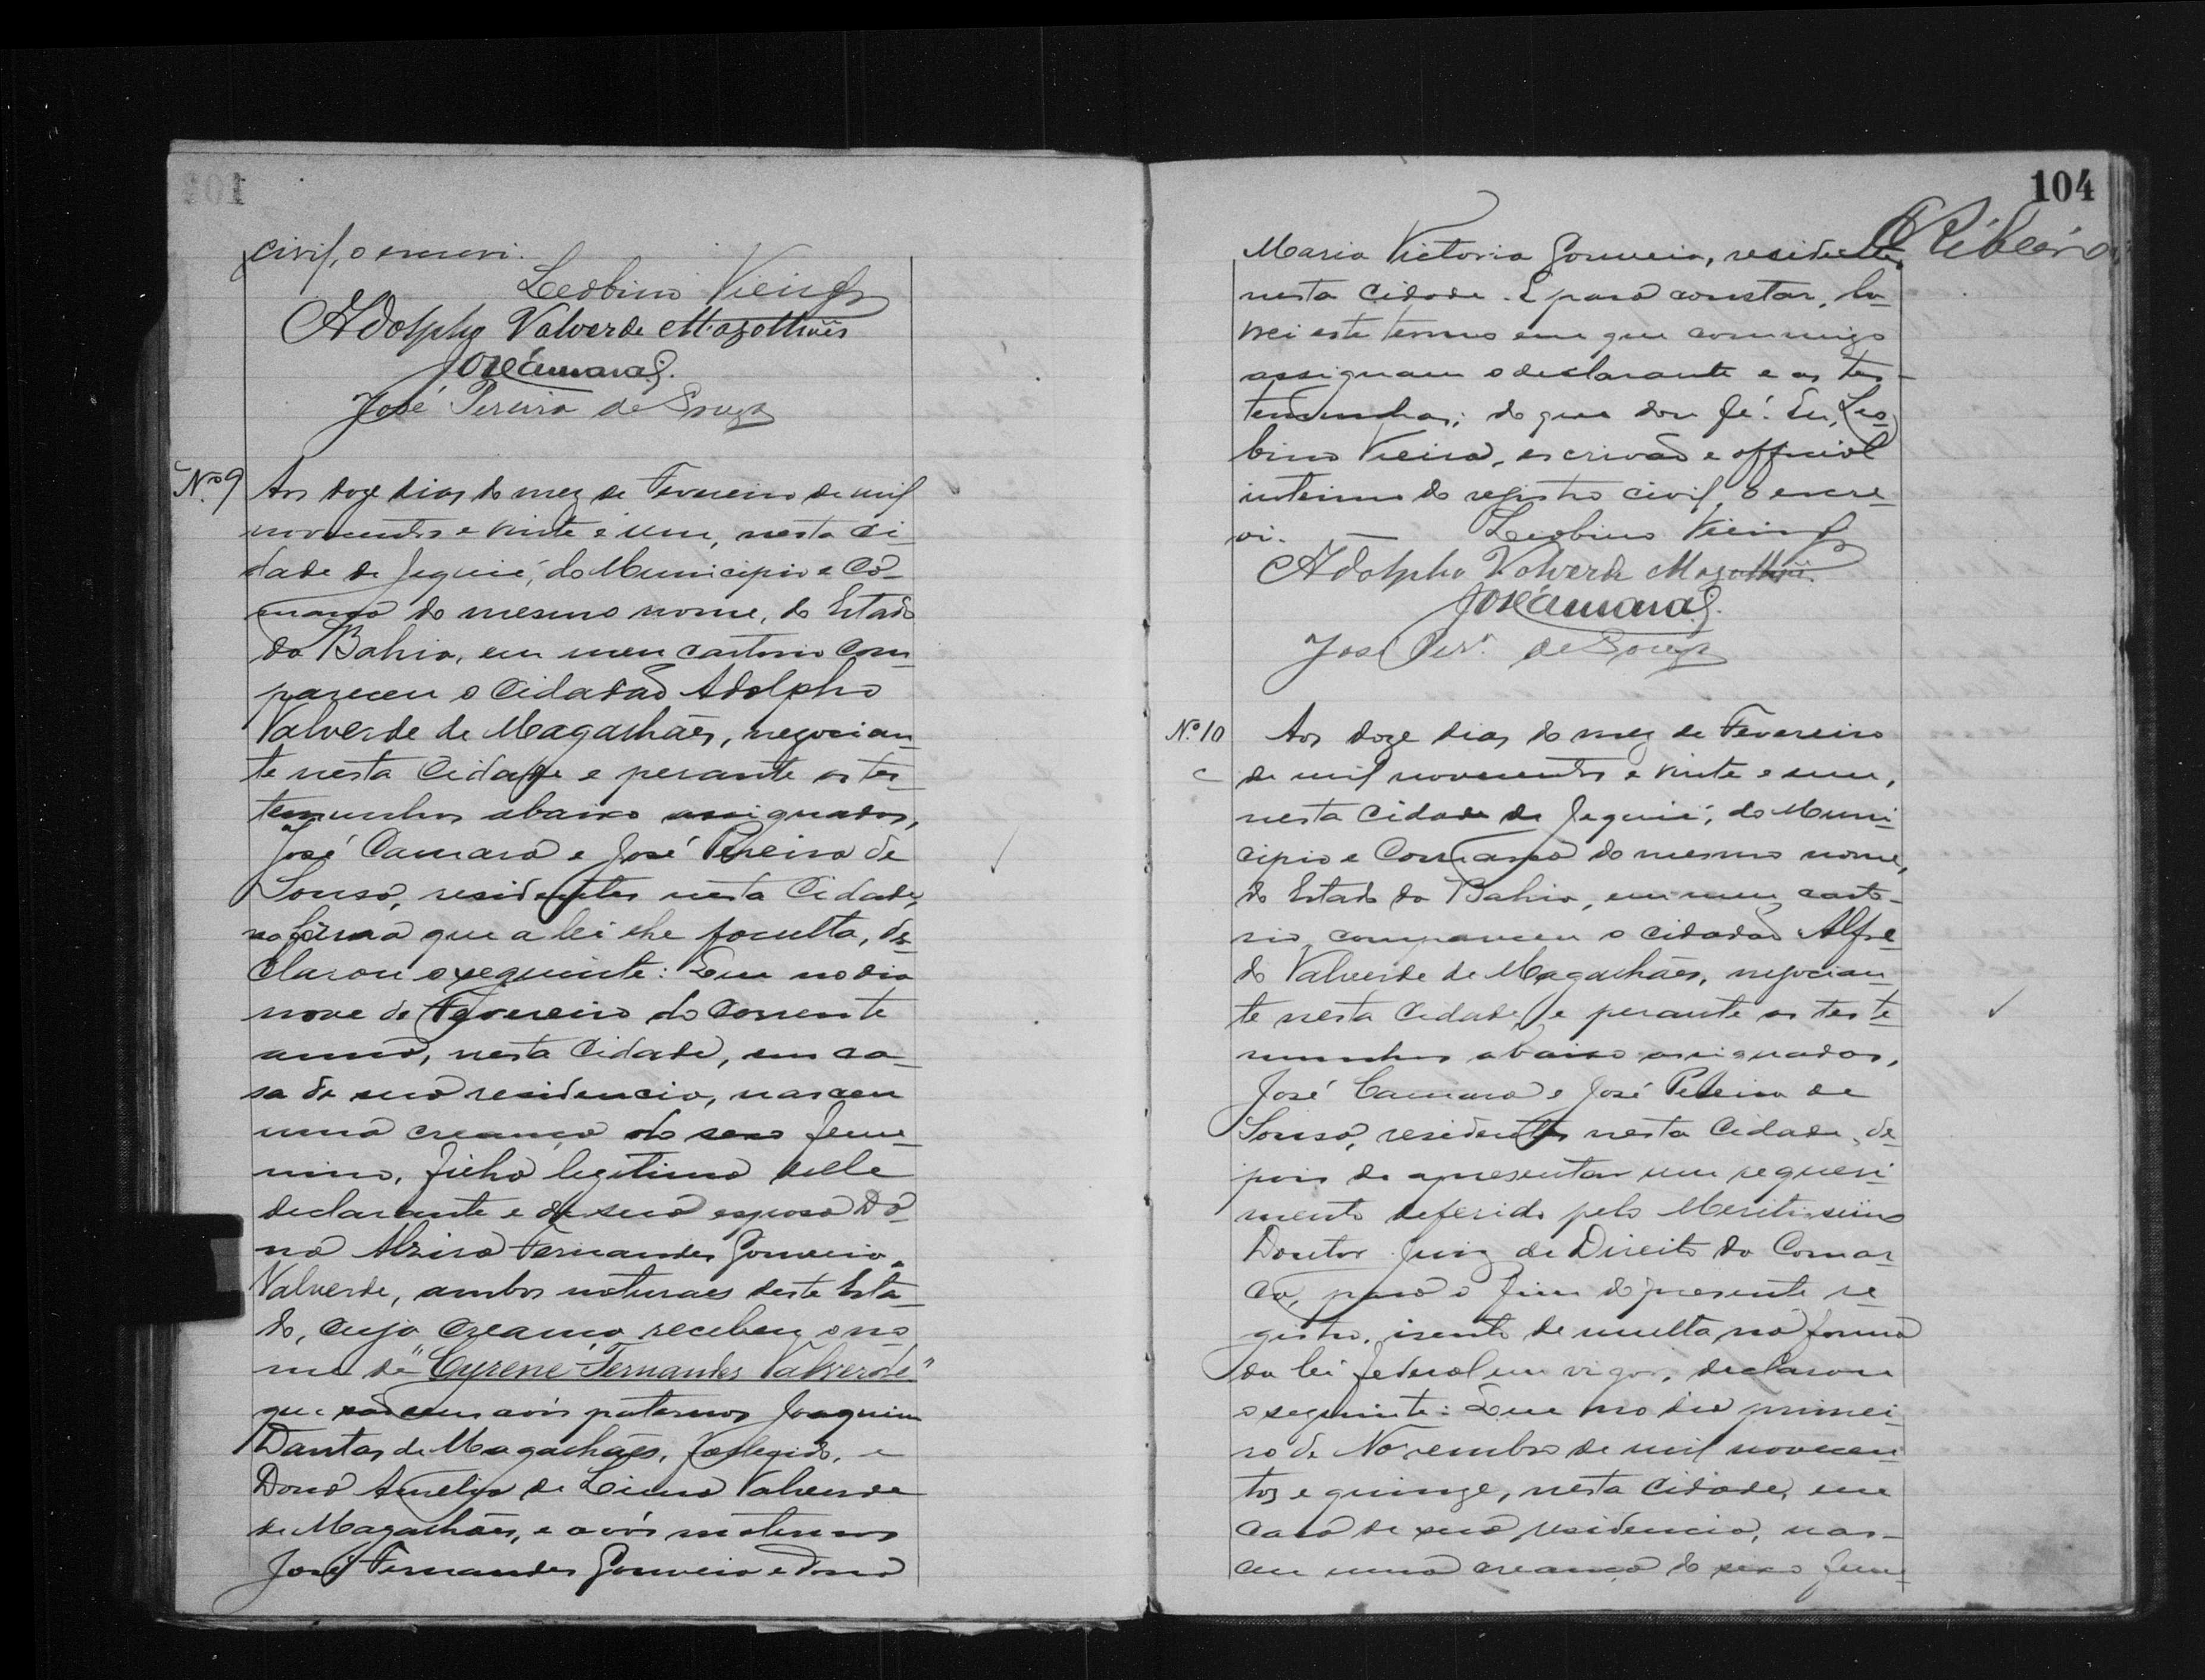 civil, o escrevi.
Leobino Vieira
Adolpho Valverde Magalhães
José Camara.
José Pereira de Souza
Nº 9
Aos doze dias do mez de Fevereiro de mil
novecentos e vinte e um, nesta ci-
dade de Jequié, do Municipio e Co-
marca do mesmo nome, do Estado
da Bahia, em meu cartorio com-
pareceu o cidadão Adolpho
Valverde de Magalhães, negocian-
te nesta Cidade e perante as tes-
temunhas abaixo assignadas,
José Camara e José Pereira de
Sousa, residentes nesta Cidade,
na fórma que a lei lhe faculta, de-
clarou o seguinte: Que no dia
nove de Fevereiro do corrente
anno, nesta Cidade, em ca-
sa de sua residencia, nasceu
uma creança do sexo femi-
nino, filha legitima delle
declarante e de sua esposa Do-
na Alzira Fernandes Gouveia
Valverde, ambos naturaes deste Esta-
do, cuja creança recebeu o no-
me de "Cyrene Fernandes Valverde"
que são seus avós paternos Joaquim
Dantas de Magalhães, fallecido, e
Dona Amelia de Lima Valverde
de Magalhães, e avós maternos
José Fernandes Gouveia e Dona
104
Ribeiro
Maria Victoria Gouveia, residentes
nesta Cidade. E para constar, la-
vrei este termo em que commigo
assignam o declarante e as tes-
temunhas; do que dou fé. Eu, Leo-
bino Vieira, escrivão e official
interino do registro civil, o escre-
vi. — Leobino Vieira
Adolpho Valverde Magalhães.
José Camara.
José Perª. de Souza
Nº 10
Aos doze dias do mez de Fevereiro
de mil novecentos e vinte e um,
nesta Cidade de Jequié, do Muni-
cipio e Comarca do mesmo nome,
do Estado da Bahia, em meu carto-
rio, compareceu o cidadão Alfre-
do Valverde de Magalhães, negocian-
te nesta Cidade, e perante as teste-
munhas abaixo assignadas,
José Camara e José Pereira de
Sousa, residentes nesta Cidade, de-
pois de apresentar um requeri-
mento deferido pelo Meritissimo
Doutor Juiz de Direito da Comar-
ca, para o fim do presente re-
gistro, isento de multa, na forma
da lei federal em vigor, declarou
o seguinte: Que no dia primei-
ro de Novembro de mil novecen-
tos e quinze, nesta Cidade, em
casa de sua residencia, nas-
ceu uma creança do sexo femi-